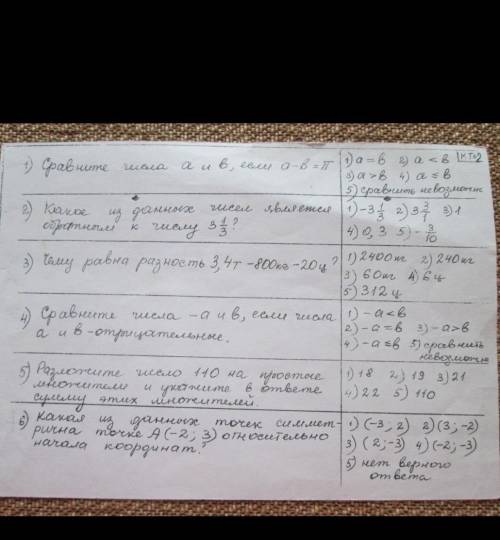 КТ-2
1) Сравните числа a и b, если a-b=π
1) a=b 2) a<b
3) a>b 4) a≤b
5) сравнить невозможн
2) Какое из данных чисел является
обратным к числу 3 1/3?
1) -3 1/3 2) 3 3/1 3) 1
4) 0,3 5) -3/10
3) Чему равна разность 3,4т -800кг -20ц?
1) 2400кг 2) 240кг
3) 60кг 4) 6ц
5) 312ц
4) Сравните числа -a и b, если числа
a и b -отрицательные.
1) -a<b
2) -a=b 3) -a>b
4) -a≤b 5) сравнить
невозможно
5) Разложите число 110 на простые
множители и укажите в ответе
сумму этих множителей.
1) 18 2) 19 3) 21
4) 22 5) 110
6) Какая из данных точек симмет-
рична точке A(-2; 3) относительно
начала координат?
1) (-3; 2) 2) (3; -2)
3) (2; -3) 4) (-2; -3)
5) нет верного
ответа